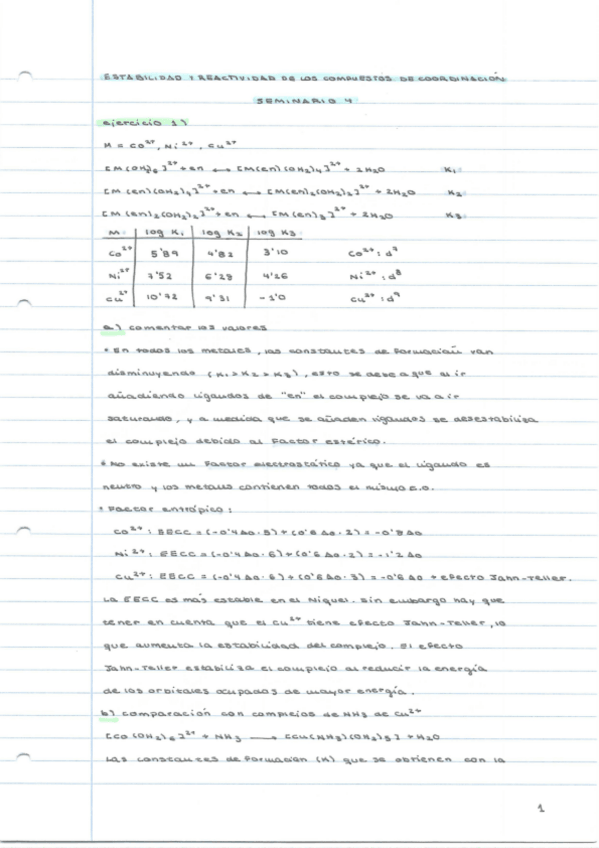 ESTABILIDAD Y REACTIVIDAD DE LOS COMPUESTOS DE COORDINACIÓN
SEMINARIO 4
ejercicio 1)
M = Co²⁺, Ni²⁺, Cu²⁺
[M(OH₂)₆]²⁺ + en ⟷ [M(en)(OH₂)₄]²⁺ + 2H₂O K₁
[M(en)(OH₂)₄]²⁺ + en ⟷ [M(en)₂(OH₂)₂]²⁺ + 2H₂O K₂
[M(en)₂(OH₂)₂]²⁺ + en ⟷ [M(en)₃]²⁺ + 2H₂O K₃
M log K₁ log K₂ log K₃
Co²⁺ 5'89 4'82 3'10 Co²⁺: d⁷
Ni²⁺ 7'52 6'28 4'26 Ni²⁺: d⁸
Cu²⁺ 10'72 9'31 -1'0 Cu²⁺: d⁹
a) comentar los valores
• En todos los metales, las constantes de formación van
disminuyendo (K₁ > K₂ > K₃), esto se debe a que al ir
añadiendo ligandos de "en" el complejo se va a ir
saturando, y a medida que se añaden ligandos se desestabiliza
el complejo debido al factor estérico.
• No existe un factor electrostático ya que el ligando es
neutro y los metales contienen todos el mismo E.O.
• Factor entrópico:
Co²⁺: EECC = (-0'4 Δo · 5) + (0'6 Δo · 2) = -0'8 Δo
Ni²⁺: EECC = (-0'4 Δo · 6) + (0'6 Δo · 2) = -1'2 Δo
Cu²⁺: EECC = (-0'4 Δo · 6) + (0'6 Δo · 3) = -0'6 Δo + efecto Jahn-Teller.
La EECC es más estable en el Níquel. Sin embargo hay que
tener en cuenta que el Cu²⁺ tiene efecto Jahn-Teller, lo
que aumenta la estabilidad del complejo. El efecto
Jahn-Teller estabiliza el complejo al reducir la energía
de los orbitales ocupados de mayor energía.
b) comparación con complejos de NH₃ de Cu²⁺
[Co(OH₂)₆]²⁺ + NH₃ ⟶ [Cu(NH₃)(OH₂)₅] + H₂O
Las constantes de formación (K) que se obtienen con la
1